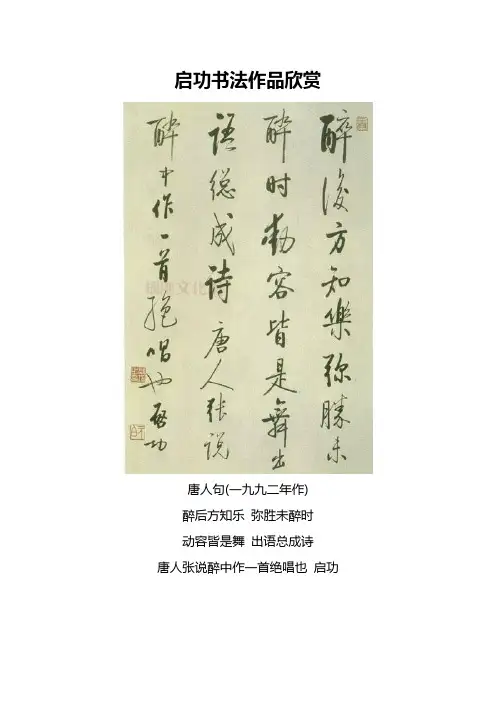 启功书法作品欣赏
醉後方知樂弥勝未
醉时動容皆是舞出
语總成诗 唐人张说
醉中作一首绝唱也 启功
唐人句(一九九二年作)
醉后方知乐 弥胜未醉时
动容皆是舞 出语总成诗
唐人张说醉中作一首绝唱也 启功